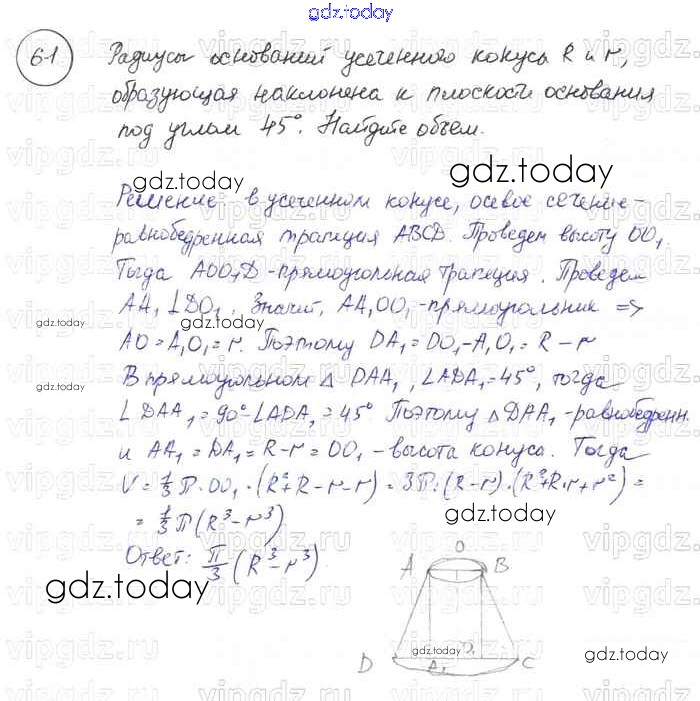 gdz.today
61
Радиусы оснований усеченного конуса R и r,
образующая наклонена к плоскости основания
под углом 45°. Найдите объем.
gdz.today
gdz.today
Решение: в усеченном конусе, осевое сечение-
равнобедренная трапеция ABCD. Проведем высоту OO₁
Тогда AOO₁D - прямоугольная трапеция. Проведем
AA₁ ⊥ DO₁. Значит, AA₁OO₁ - прямоугольник =>
gdz.today
AO = A₁O₁ = r. Поэтому DA₁ = DO₁ - A₁O₁ = R - r
В прямоугольном △ DAA₁, ∠ADA₁ = 45°, тогда
gdz.today
∠ DAA₁ = 90° ∠ADA₁ = 45° Поэтому △ DAA₁ - равнобедренн.
и AA₁ = DA₁ = R - r = OO₁ - высота конуса. Тогда
V = 1/3 π · OO₁ · (R² + R - r - r) = 3π · (R - r) · (R² + R · r + r²) =
= 1/3 π (R³ - r³)
gdz.today
Ответ: π/3 (R³ - r³)
gdz.today
O
A B
gdz.today
O₁
D A₁ C
gdz.today
vipgdz.ru